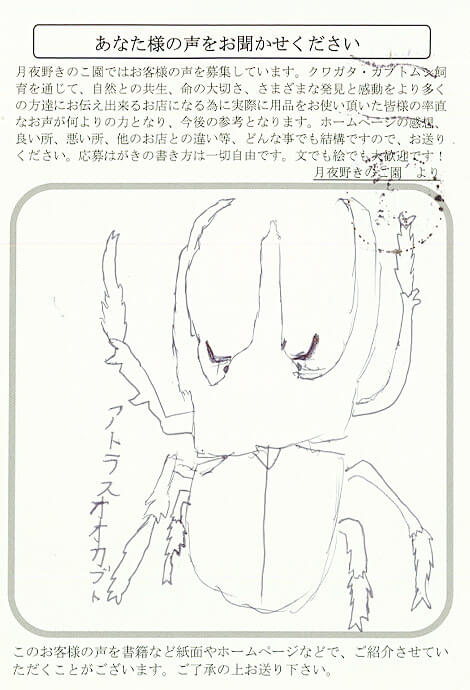 あなた様の声をお聞かせください
月夜野きのこ園ではお客様の声を募集しています。クワガタ・カブトムシ飼
育を通じて、自然との共生、命の大切さ、さまざまな発見と感動をより多く
の方達にお伝え出来るお店になる為に実際に用品をお使い頂いた皆様の率直
なお声が何よりの力となり、今後の参考となります。ホームページの感想、
良い所、悪い所、他のお店との違い等、どんな事でも結構ですので、お送り
ください。応募はがきの書き方は一切自由です。文でも絵でも大歓迎です！
月夜野きのこ園　より
アトラスオオカブト
このお客様の声を書籍など紙面やホームページなどで、ご紹介させてい
ただくことがございます。ご了承の上お送り下さい。